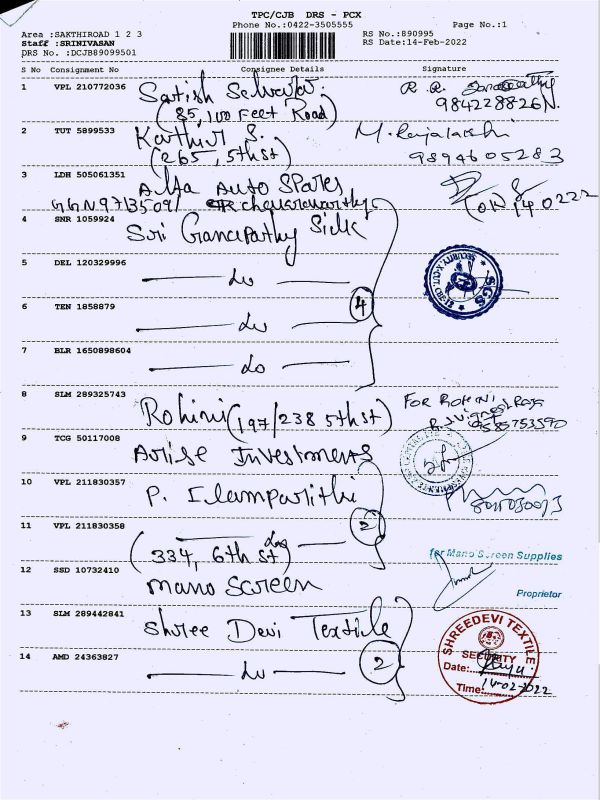 TPC/CJB DRS - PCX
Phone No.:0422-3505555 Page No.:1
Area :SAKTHIROAD 1 2 3 RS No.:890995
Staff :SRINIVASAN RS Date:14-Feb-2022
DRS No. :DCJB89099501
S No Consignment No Consignee Details Signature
1 VPL 210772036 Satish Selvaraj.
(85, 100 Feet Road) 984228826
2 TUT 5899533 Karthik S.
(265, 5th st) 9894605283
3 LDH 505061351 Alfa Auto Spares
GGN97135091
4 SNR 1059924
Sri Ganapathy Silk
5 DEL 120329996 do
SECURITY
SGS
6 TEN 1858879 do
4
7 BLR 1650898604 do
8 SLM 289325743
Rohini (197/238 5th st) For Rohini
9 TCG 50117008 Arise Investments
10 VPL 211830357 P. Ilamparithi
2
11 VPL 211830358 do
(334, 6th st) for Mano Screen Supplies
12 SSD 10732410 mano screen
Proprietor
13 SLM 289442841 Shree Devi Textile
SHREEDEVI TEXTILE
SECURITY
14 AMD 24363827 do 2 Date:
14-02-2022
Time: